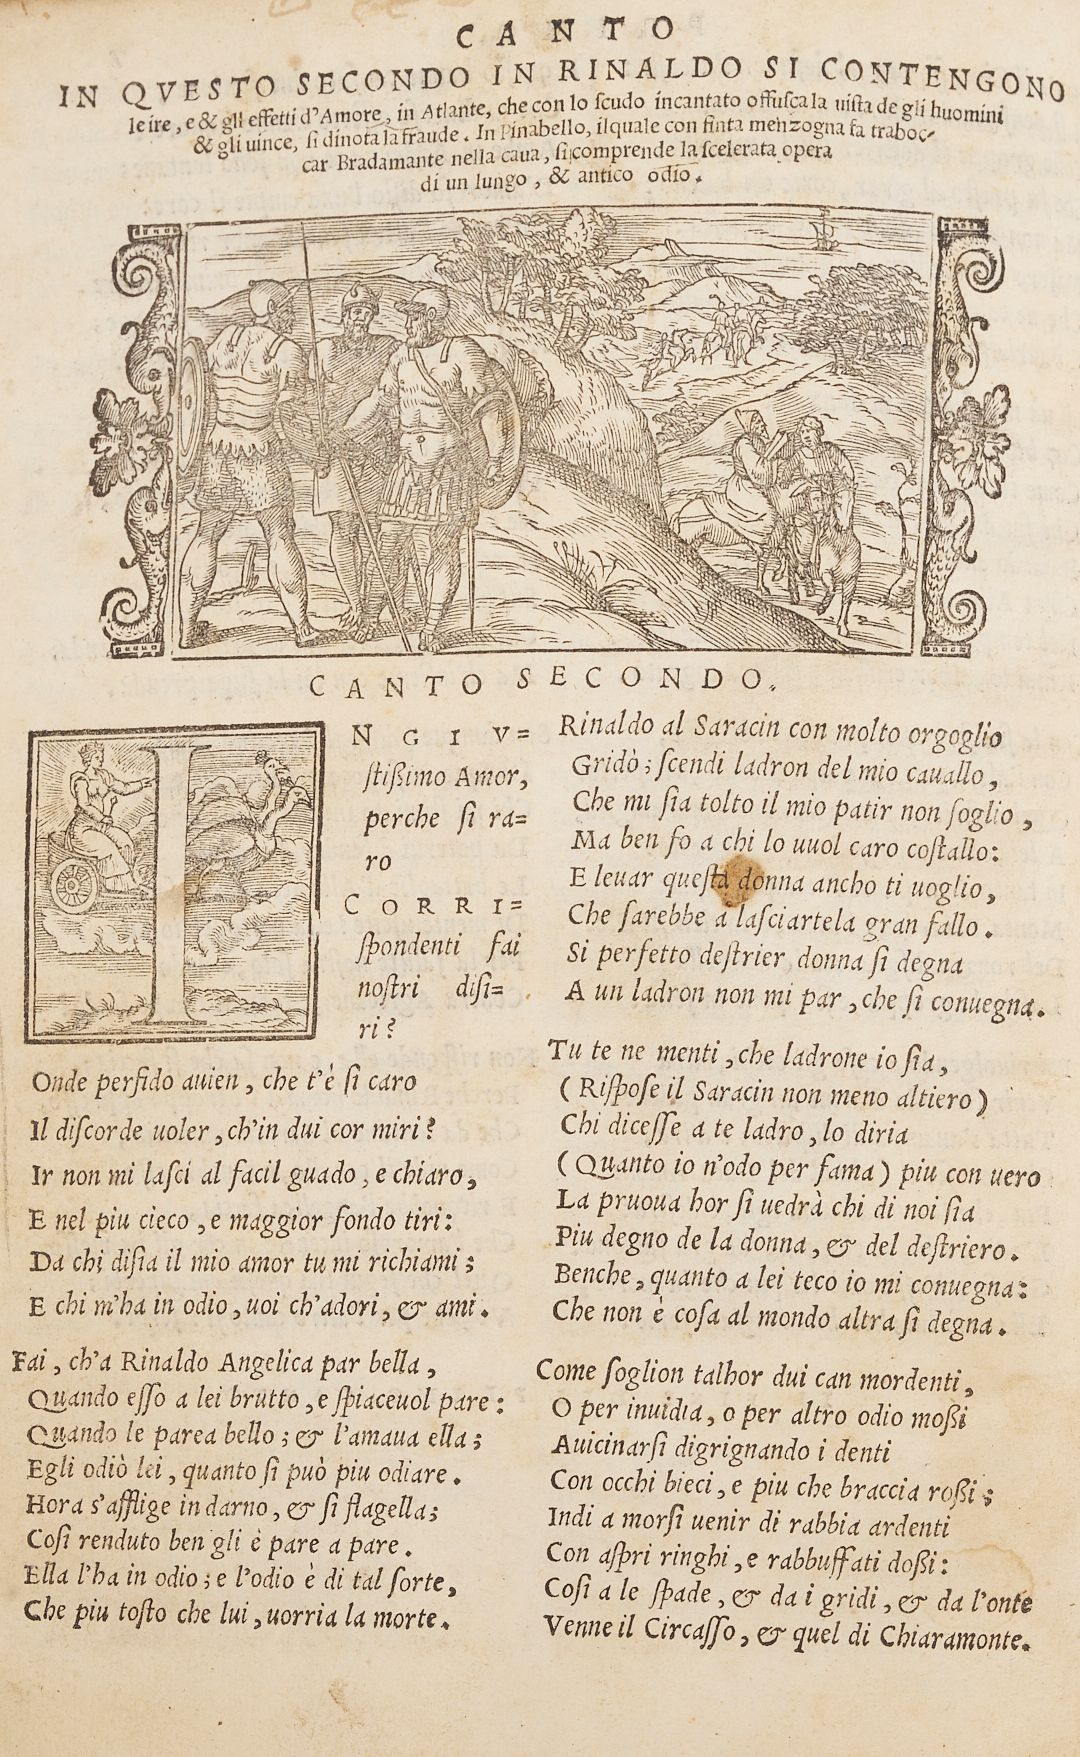 CANTO
IN QVESTO SECONDO IN RINALDO SI CONTENGONO
le ire, e & gli effetti d'Amore, in Atlante, che con lo ſcudo incantato offuſca la uiſta de gli huomini
& gli uince, ſi dinota la fraude. In Pinabello, ilquale con finta menzogna fa traboc-
car Bradamante nella caua, ſi comprende la ſcelerata opera
di un lungo, & antico odio.
CANTO SECONDO.
I
NGIV=
ſtißimo Amor,
perche ſi ra=
ro
CORRI=
ſpondenti fai
noſtri diſi=
ri?
Onde perfido auien, che t'è ſi caro
Il diſcorde uoler, ch'in dui cor miri?
Ir non mi laſci al facil guado, e chiaro,
E nel piu cieco, e maggior fondo tiri:
Da chi diſia il mio amor tu mi richiami;
E chi m'ha in odio, uoi ch'adori, & ami.
Fai, ch'a Rinaldo Angelica par bella,
Quando eſſo a lei brutto, e ſpiaceuol pare:
Quando le parea bello; & l'amaua ella;
Egli odiò lei, quanto ſi può piu odiare.
Hora s'afflige indarno, & ſi flagella;
Coſi renduto ben gli è pare a pare.
Ella l'ha in odio; e l'odio è di tal ſorte,
Che piu toſto che lui, uorria la morte.
Rinaldo al Saracin con molto orgoglio
Gridò; ſcendi ladron del mio cauallo,
Che mi ſia tolto il mio patir non ſoglio,
Ma ben fo a chi lo uuol caro coſtallo:
E leuar queſta donna ancho ti uoglio,
Che ſarebbe a laſciartela gran fallo.
Si perfetto deſtrier, donna ſi degna
A un ladron non mi par, che ſi conuegna.
Tu te ne menti, che ladrone io ſia,
(Riſpoſe il Saracin non meno altiero)
Chi diceſſe a te ladro, lo diria
(Quanto io n'odo per fama) piu con uero
La pruoua hor ſi uedrà chi di noi ſia
Piu degno de la donna, & del deſtriero.
Benche, quanto a lei teco io mi conuegna:
Che non è coſa al mondo altra ſi degna.
Come ſoglion talhor dui can mordenti,
O per inuidia, o per altro odio moßi
Auicinarſi digrignando i denti
Con occhi bieci, e piu che braccia roßi;
Indi a morſi uenir di rabbia ardenti
Con aſpri ringhi, e rabbuffati doßi:
Coſi a le ſpade, & da i gridi, & da l'onte
Venne il Circaſſo, & quel di Chiaramonte.